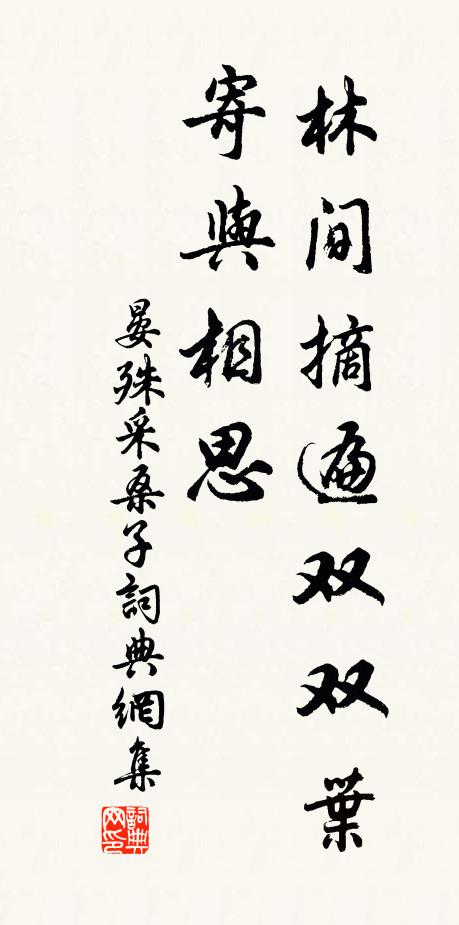 林间摘遍双双葉
寄與相思
晏殊采桑子詞典網集
詞典网印